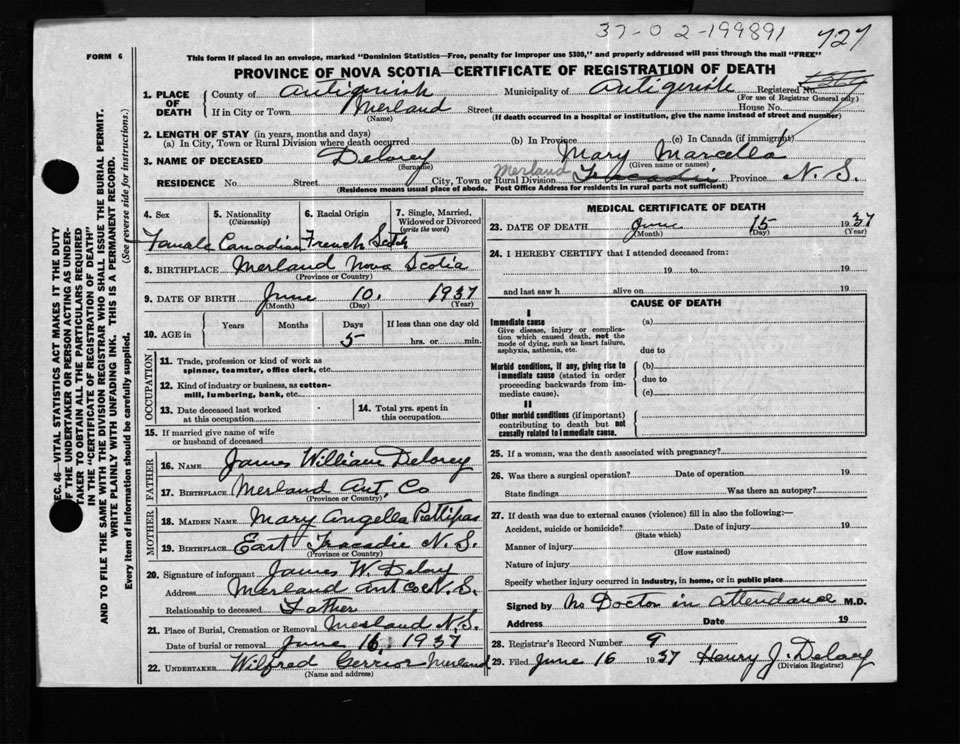 37-02-199891 727
FORM 6 This form if placed in an envelope, marked "Dominion Statistics—Free, penalty for improper use $300," and properly addressed will pass through the mail "FREE"
PROVINCE OF NOVA SCOTIA—CERTIFICATE OF REGISTRATION OF DEATH
1. PLACE OF DEATH County of Antigonish Municipality of Antigonish Registered No.
(For use of Registrar General only)
If in City or Town Merland Street House No.
(Name) (If death occurred in a hospital or institution, give the name instead of street and number)
2. LENGTH OF STAY (in years, months and days)
(a) In City, Town or Rural Division where death occurred (b) In Province (c) In Canada (if immigrant)
3. NAME OF DECEASED Delorey Mary Marcella
(Surname) (Given name or names)
RESIDENCE No. Street City, Town or Rural Division Merland Tracadie Province N.S.
(Residence means usual place of abode. Post Office Address for residents in rural parts not sufficient)
4. Sex 5. Nationality (Citizenship) 6. Racial Origin 7. Single, Married, Widowed or Divorced (write the word)
Female Canadian French Scotch
8. BIRTHPLACE Merland Nova Scotia
(Province or Country)
9. DATE OF BIRTH June 10. 1937
(Month) (Day) (Year)
10. AGE in Years Months Days If less than one day old
5 hrs. or min.
OCCUPATION
11. Trade, profession or kind of work as spinner, teamster, office clerk, etc.
12. Kind of industry or business, as cotton-mill, lumbering, bank, etc.
13. Date deceased last worked at this occupation 14. Total yrs. spent in this occupation
15. If married give name of wife or husband of deceased
FATHER
16. NAME James William Delorey
17. BIRTHPLACE Merland Ant, Co
(Province or Country)
MOTHER
18. MAIDEN NAME Mary Angella Pettipas
19. BIRTHPLACE East Tracadie N.S.
(Province or Country)
20. Signature of informant James W. Delorey
Address Merland Ant Co N.S.
Relationship to deceased Father
21. Place of Burial, Cremation or Removal Merland N.S.
Date of burial or removal June 16, 1937
22. UNDERTAKER Wilfred Gerrior Merland
(Name and address)
MEDICAL CERTIFICATE OF DEATH
23. DATE OF DEATH June 15 1937
(Month) (Day) (Year)
24. I HEREBY CERTIFY that I attended deceased from:
19 to 19
and last saw h alive on 19
CAUSE OF DEATH
I
Immediate cause (a)
Give disease, injury or complication which caused death, not the mode of dying, such as heart failure, asphyxia, asthenia, etc.
due to
Morbid conditions, if any, giving rise to immediate cause (stated in order proceeding backwards from immediate cause).
(b)
due to
(c)
II
Other morbid conditions (if important) contributing to death but not causally related to immediate cause.
25. If a woman, was the death associated with pregnancy?
26. Was there a surgical operation? Date of operation 19
State findings Was there an autopsy?
27. If death was due to external causes (violence) fill in also the following:—
Accident, suicide or homicide? Date of injury 19
(State which)
Manner of injury
(How sustained)
Nature of injury
Specify whether injury occurred in Industry, in home, or in public place
Signed by No Doctor in attendance M.D.
Address Date 19
28. Registrar's Record Number 9
29. Filed June 16 1937 Henry J. Delorey
(Division Registrar)
SEC. 46—VITAL STATISTICS ACT MAKES IT THE DUTY
OF THE UNDERTAKER OR PERSON ACTING AS UNDER-
TAKER TO OBTAIN ALL THE PARTICULARS REQUIRED
IN THE "CERTIFICATE OF REGISTRATION OF DEATH"
AND TO FILE THE SAME WITH THE DIVISION REGISTRAR WHO SHALL ISSUE THE BURIAL PERMIT.
WRITE PLAINLY WITH UNFADING INK. THIS IS A PERMANENT RECORD.
Every item of information should be carefully supplied. (See reverse side for instructions.)